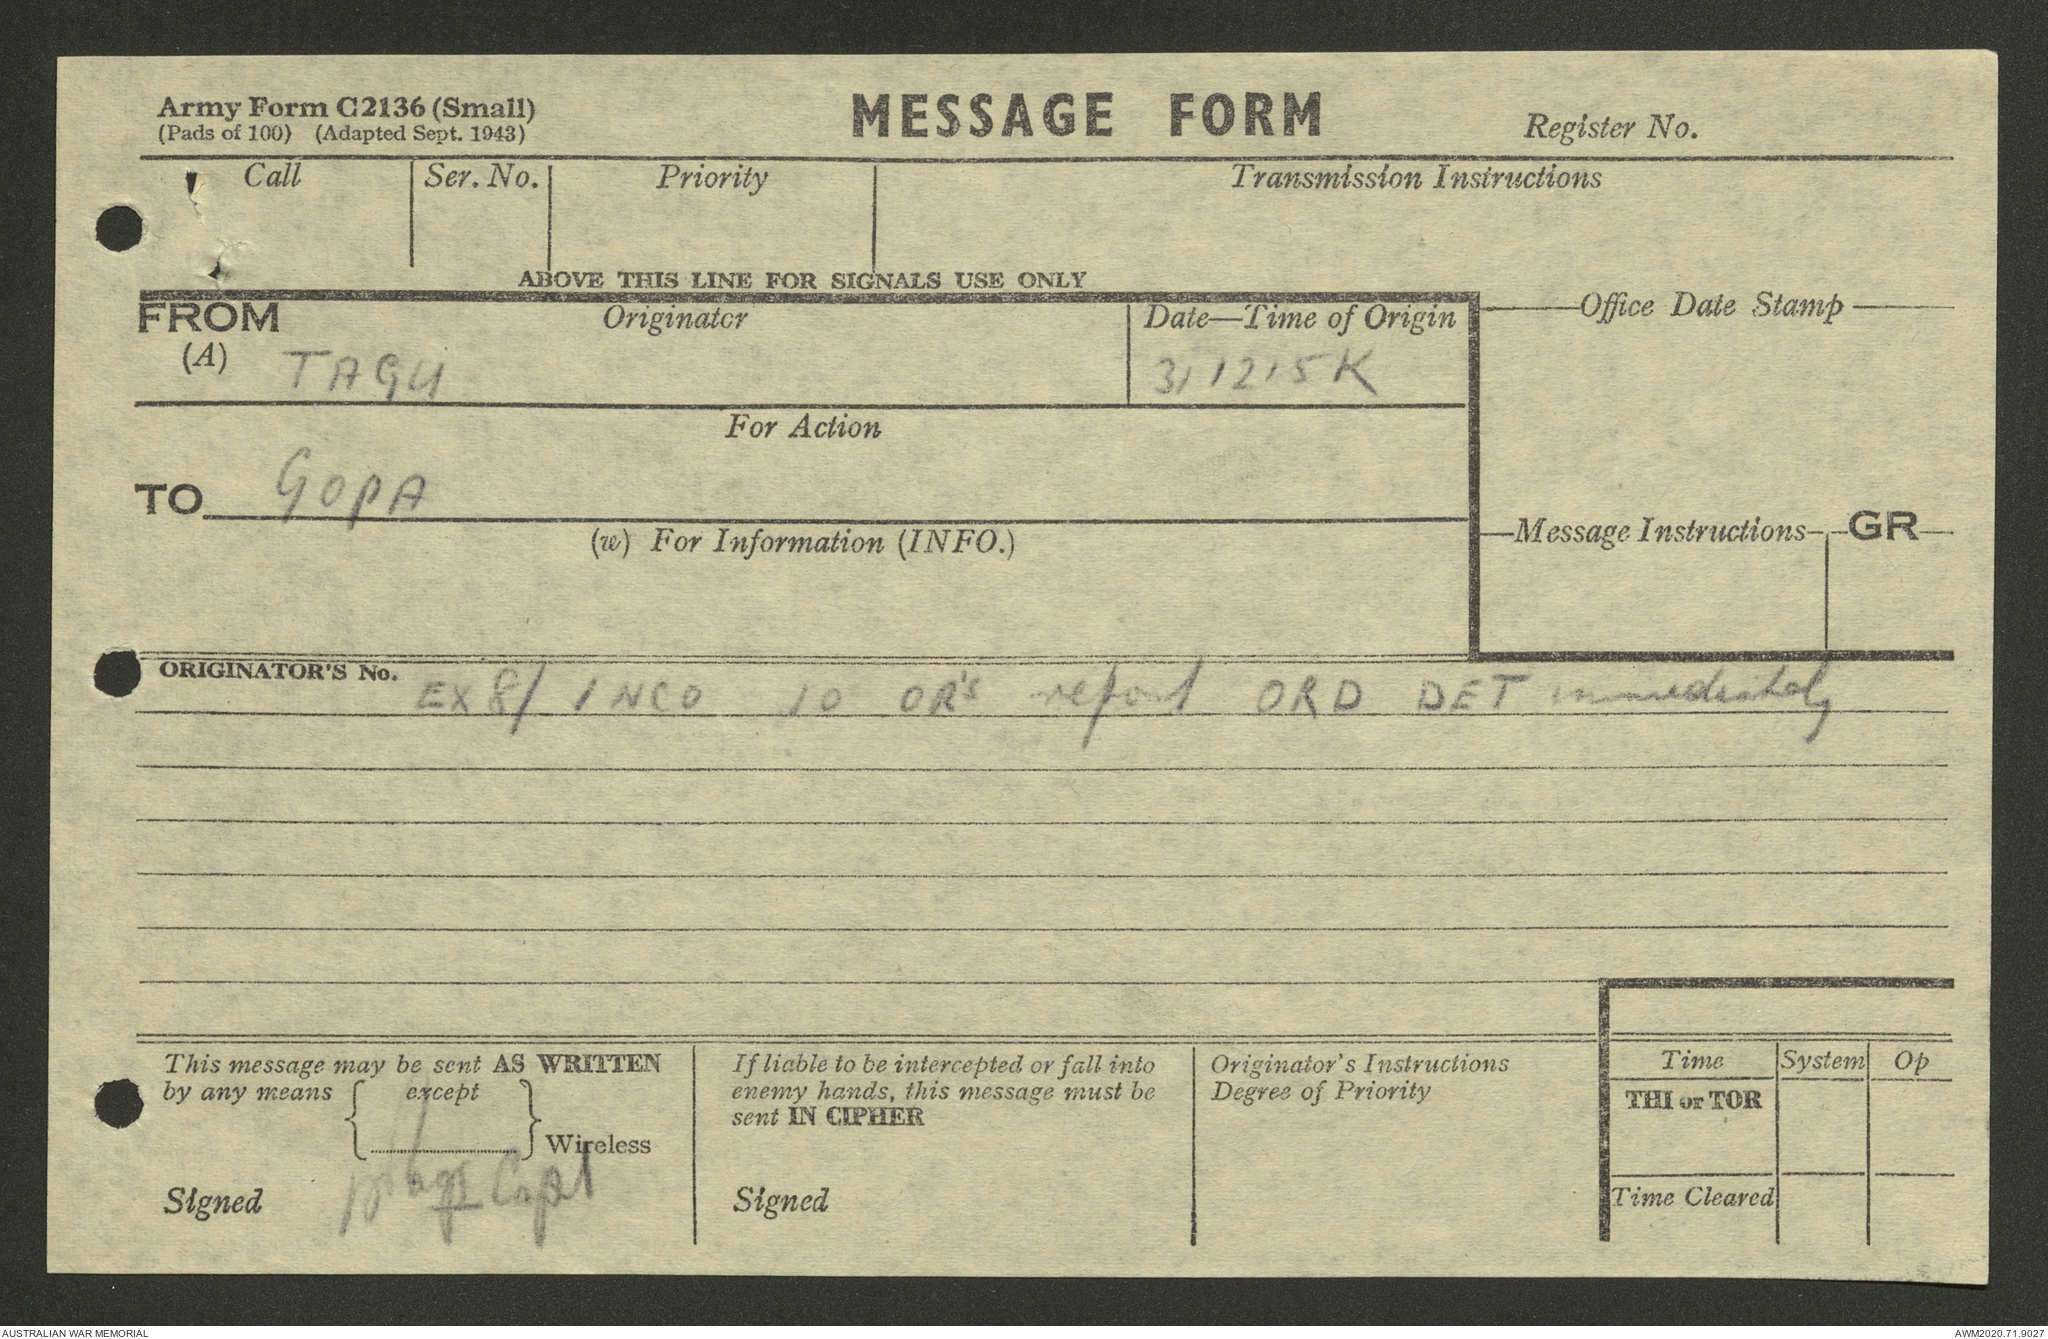 Army Form C2136 (Small)
(Pads of 100) (Adapted Sept. 1943)
MESSAGE FORM
Register No.
Call
Ser. No.
Priority
Transmission Instructions
ABOVE THIS LINE FOR SIGNALS USE ONLY
FROM
(A)
Originator
TAGU
Date—Time of Origin
311215K
Office Date Stamp
For Action
TO
GOPA
(w) For Information (INFO.)
Message Instructions
GR
ORIGINATOR'S No.
1 NCO 10 OR's report ORD DET immediately
This message may be sent AS WRITTEN
by any means except
Wireless
Signed
Capt
If liable to be intercepted or fall into
enemy hands, this message must be
sent IN CIPHER
Signed
Originator's Instructions
Degree of Priority
Time
System
Op
THI or TOR
Time Cleared
AUSTRALIAN WAR MEMORIAL
AWM2020.71.9027